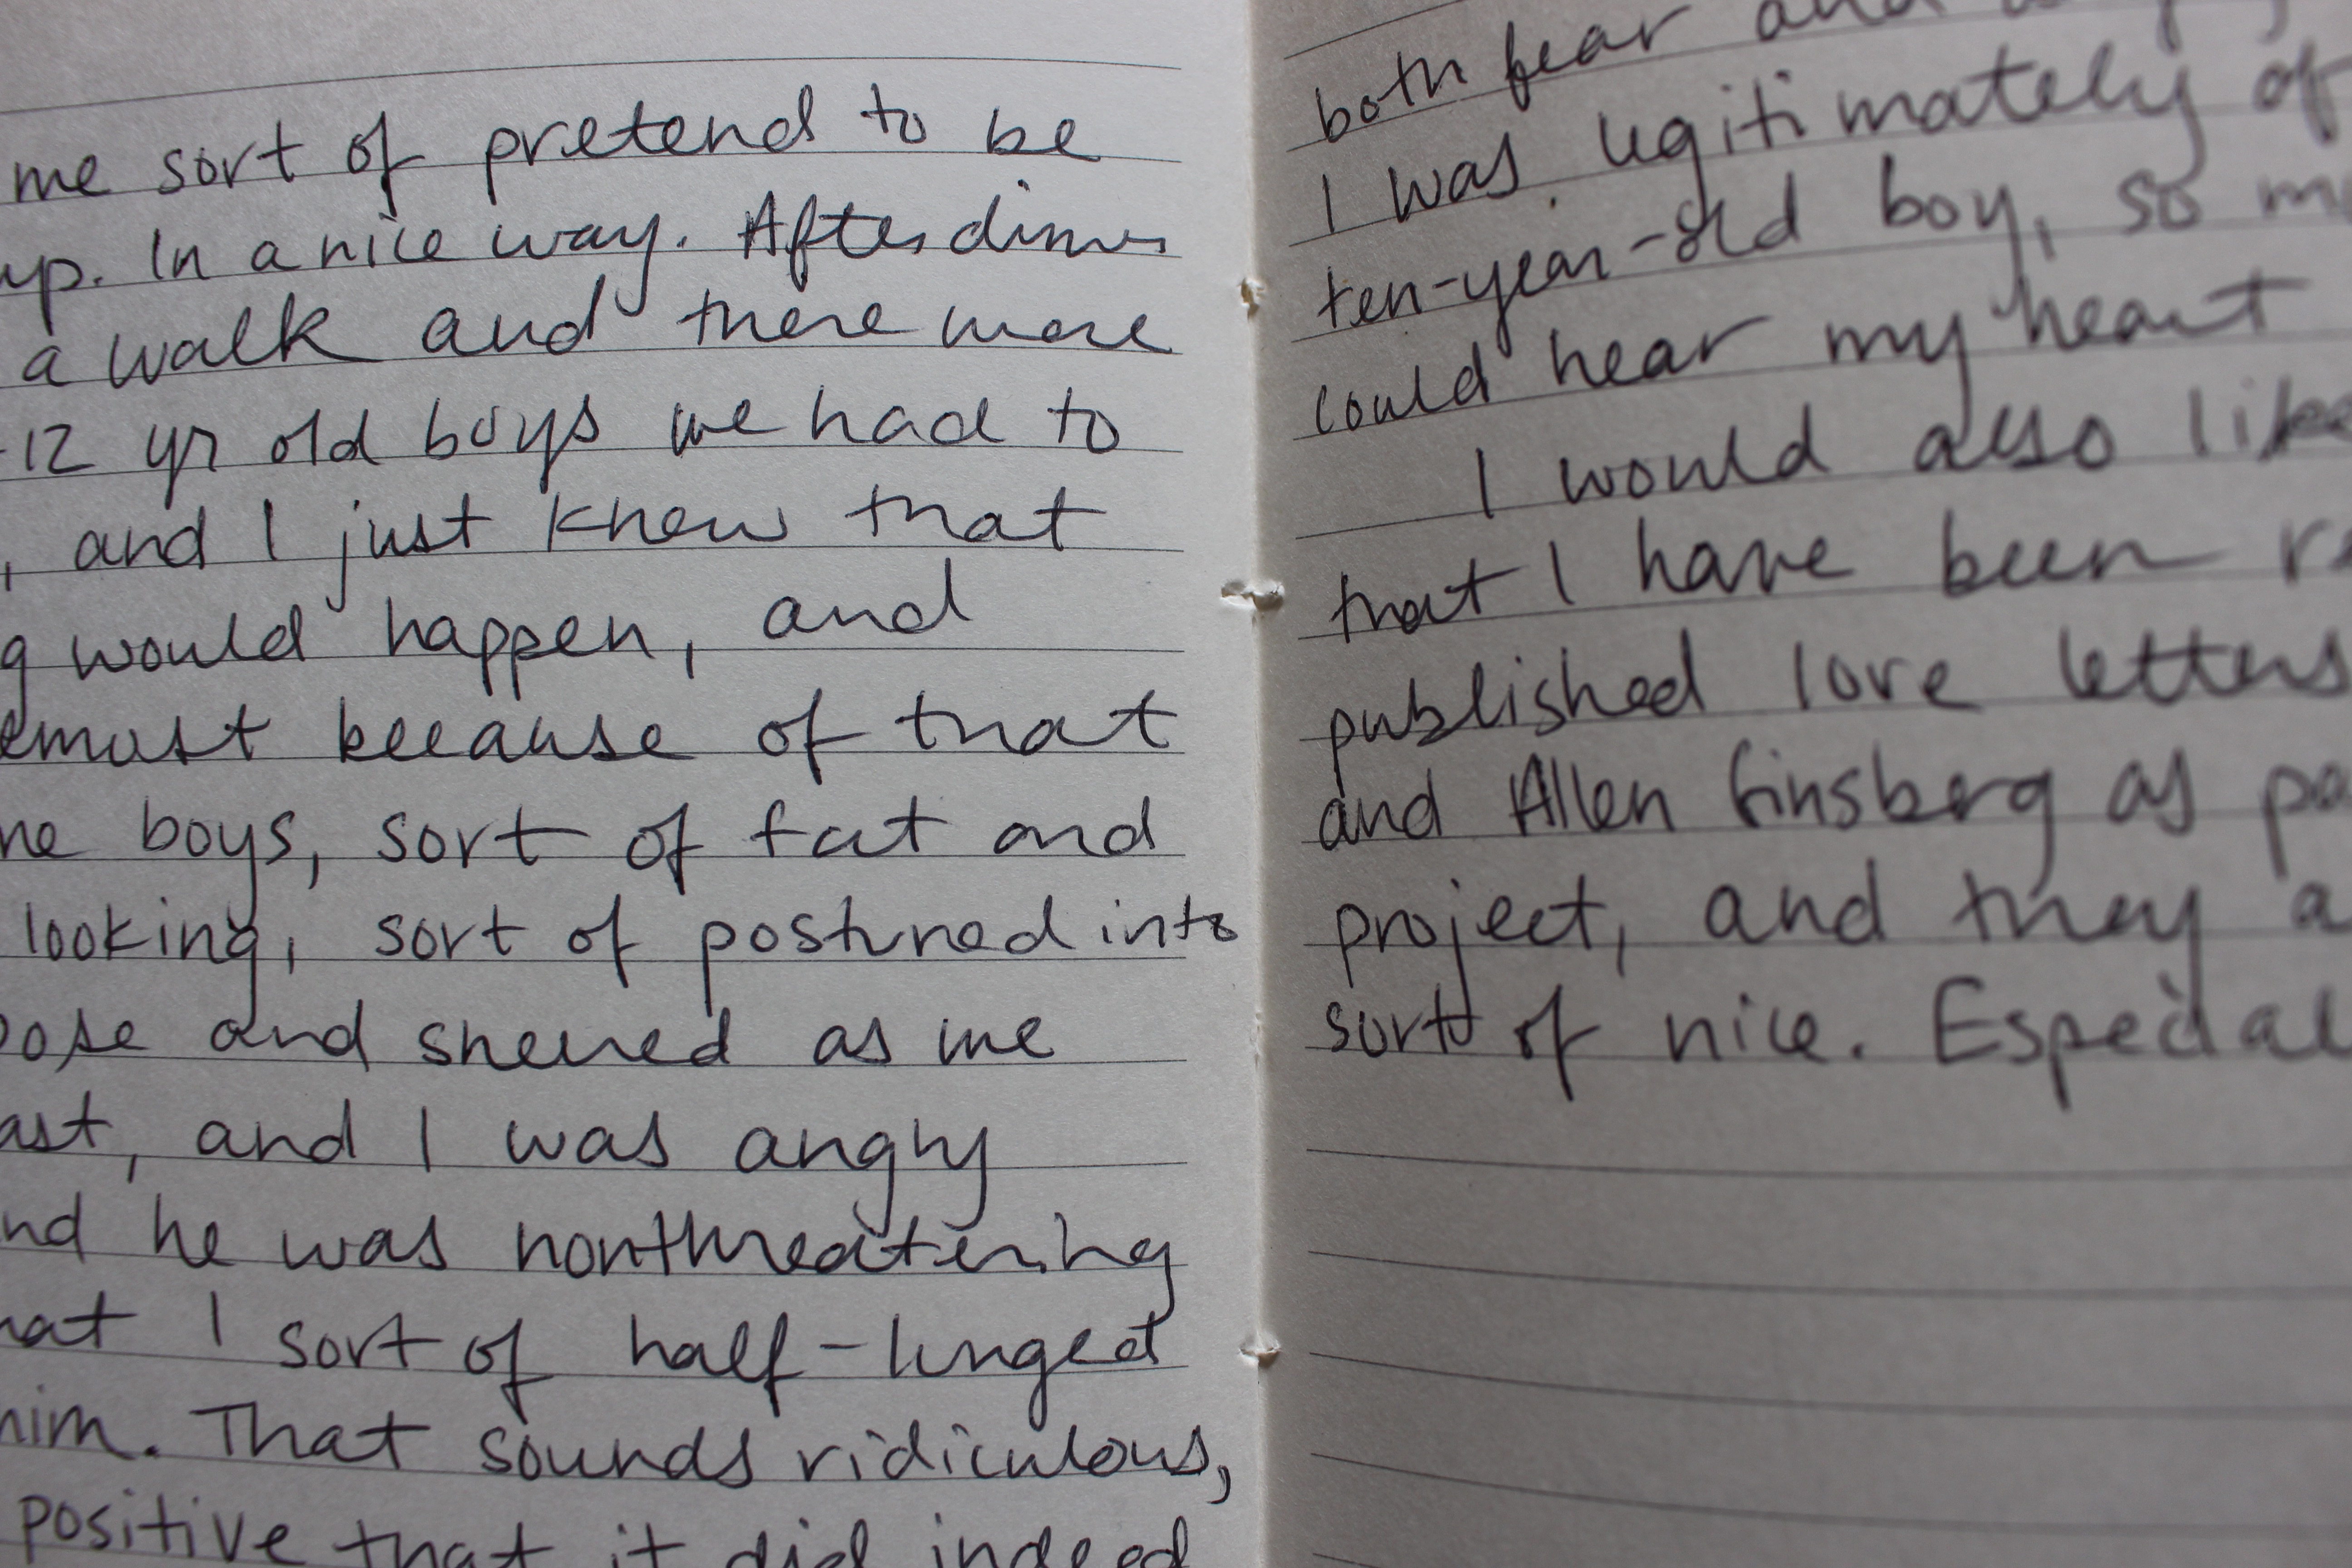 me sort of pretend to be
up. In a nice way. After dinner
a walk and there were
12 yr old boys we had to
, and I just knew that
g would happen, and
because of that
boys, sort of fat and
looking, sort of postured into
pose and sneered as we
ast, and I was angry
nd he was nonthreatening
hat I sort of half-lunged
him. That sounds ridiculous,
positive that it did indeed
both fear and
I was legitimately of
ten-year-old boy, so m
could hear my heart
I would also like
that I have been re
published love letters
and Allen Ginsberg as pa
project, and they a
sort of nice. Especial